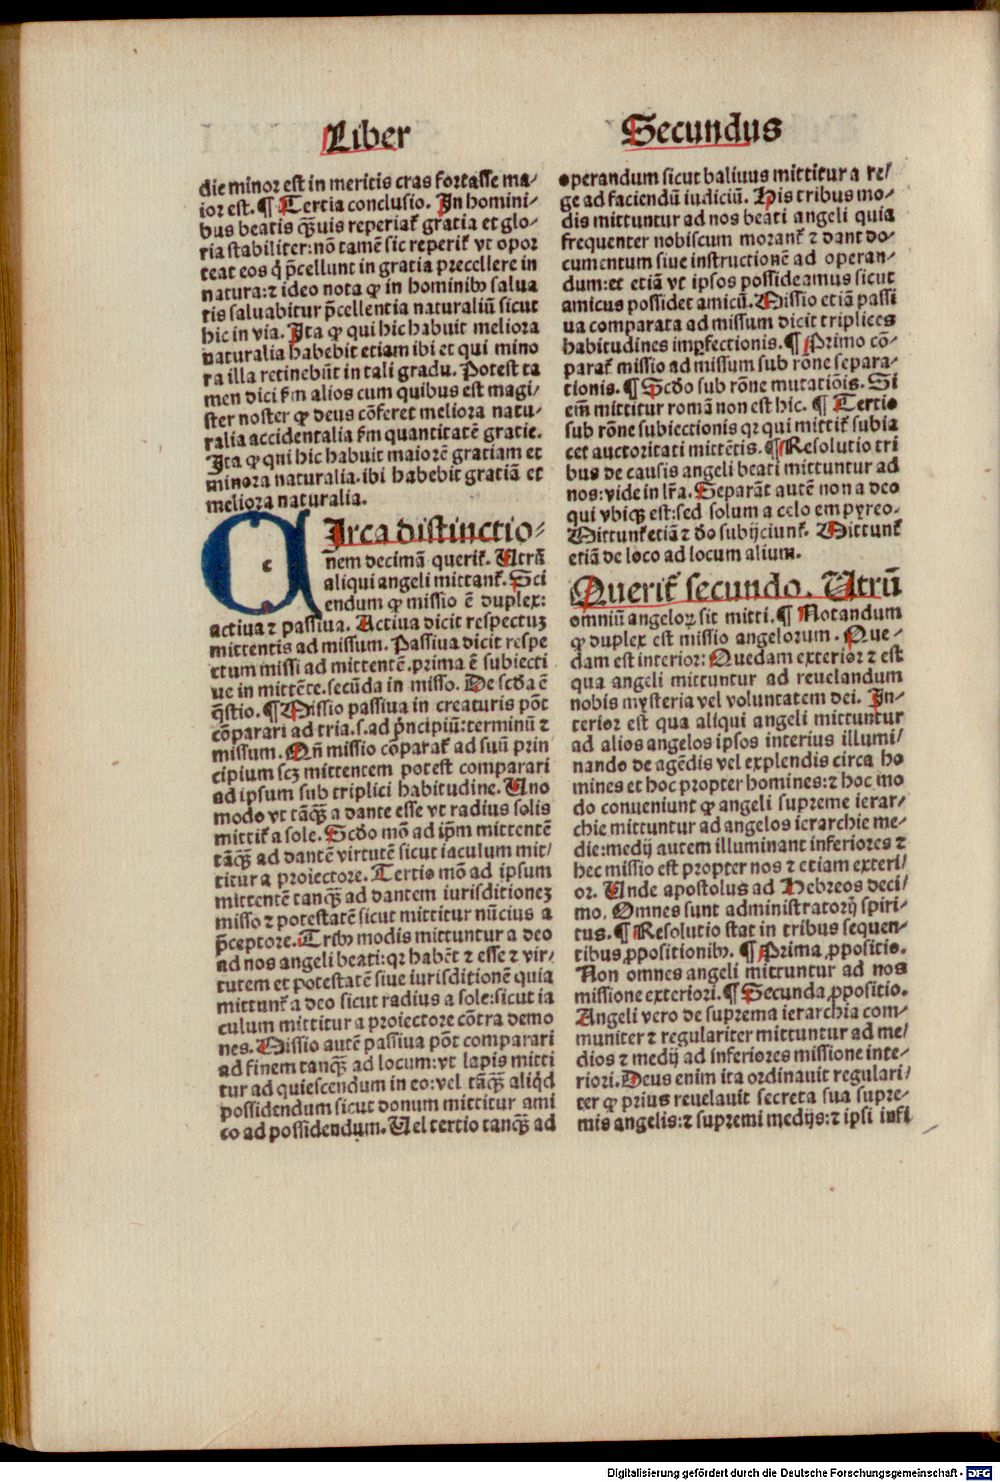 Liber Secundus
die minor est in meritis cras fortasse ma-
ior est. ¶ Tertia conclusio. In homini-
bus beatis q̃uis reperiat᷑ gratia et glo-
ria stabiliter: nō tamē sic reperit᷑ vt opor
teat eos q̇ p̄cellunt in gratia precellere in
natura: ⁊ ideo nota ꝙ in hominibꝰ salua
tis saluabitur p̄cellentia naturaliū sicut
hic in via. Ita ꝙ qui hic habuit meliora
naturalia habebit etiam ibi et qui mino
ra illa retinebūt in tali gradu. Potest ta
men dici ẜm alios cum quibus est magi-
ster noster ꝙ deus cōferet meliora natu-
ralia accidentalia ẜm quantitatē gratie.
Ita ꝙ qui hic habuit maiorē gratiam et
minora naturalia. ibi habebit gratiā et
meliora naturalia.
CIrca distinctio-
nem decimā querit᷑. Utrū
aliqui angeli mittant᷑. Sci
endum ꝙ missio ē duplex:
actiua ⁊ passiua. Actiua dicit respectuʒ
mittentis ad missum. Passiua dicit respe
ctum missi ad mittentē. prima ē subiecti
ue in mittēte. secūda in misso. De scḋa ē
q̄stio. ¶ Missio passiua in creaturis pōt
cōparari ad tria. s. ad p̄ncipiū: terminū ⁊
missum. Qn̄ missio cōparat᷑ ad suū prin
cipium scʒ mittentem potest comparari
ad ipsum sub triplici habitudine. Uno
modo vt tāq̃ a dante esse vt radius solis
mittit᷑ a sole. Scḋo mō ad ip̄m mittentē
tāq̃ ad dantē virtutē sicut iaculum mit-
titur a proiectore. Tertio mō ad ipsum
mittentē tanq̃ ad dantem iurisditioneʒ
misso ⁊ potestatē sicut mittitur nūcius a
p̄ceptore. Tribꝰ modis mittuntur a deo
ad nos angeli beati: qꝛ habēt ⁊ esse ⁊ vir-
tutem et potestatē siue iurisditionē quia
mittunt᷑ a deo sicut radius a sole: sicut ia
culum mittitur a proiectore cōtra demo
nes. Missio autē passiua pōt comparari
ad finem tanq̃ ad locum: vt lapis mitti
tur ad quiescendum in eo: vel tāq̃ aliqḋ
possidendum sicut donum mittitur ami
co ad possidendum. Uel tertio tanq̃ ad
operandum sicut baliuus mittitur a re-
ge ad faciendū iudiciū. His tribus mo-
dis mittuntur ad nos beati angeli quia
frequenter nobiscum morant᷑ ⁊ dant do-
cumentum siue instructionē ad operan-
dum: et etiā vt ipsos possideamus sicut
amicus possidet amicū. Missio etiā passi
ua comparata ad missum dicit triplices
habitudines imꝑfectionis. ¶ Primo cō-
parat᷑ missio ad missum sub rōne separa-
tionis. ¶ Scḋo sub rōne mutatiōis. Si
em̄ mittitur romā non est hic. ¶ Tertio
sub rōne subiectionis qꝛ qui mittit᷑ subia
cet auctoritati mittētis. ¶ Resolutio tri
bus de causis angeli beati mittuntur ad
nos: vide in lr̄a. Separāt autē non a deo
qui vbiqꝫ est: sed solum a celo empyreo.
Mittunt᷑ etiā ⁊ ḋo subijciunt᷑. Mittunt᷑
etiā de loco ad locum alium.
Querit᷑ secundo. Utrū
omniū angeloꝝ sit mitti. ¶ Notandum
ꝙ duplex est missio angelorum. Que-
dam est interior: Quedam exterior ⁊ est
qua angeli mittuntur ad reuelandum
nobis mysteria vel voluntatem dei. In-
terior est qua aliqui angeli mittuntur
ad alios angelos ipsos interius illumi-
nando de agēdis vel explendis circa ho
mines et hoc propter homines: ⁊ hoc mo
do conueniunt ꝙ angeli supreme ierar-
chie mittuntur ad angelos ierarchie me-
die: medij autem illuminant inferiores ⁊
hec missio est propter nos ⁊ etiam exteri-
or. Unde apostolus ad Hebreos deci-
mo. Omnes sunt administratorij spiri-
tus. ¶ Resolutio stat in tribus sequen-
tibus ꝓpositionibꝰ. ¶ Prima ꝓpositio.
Non omnes angeli mittuntur ad nos
missione exteriori. ¶ Secunda ꝓpositio.
Angeli vero de suprema ierarchia com-
muniter ⁊ regulariter mittuntur ad me-
dios ⁊ medij ad inferiores missione inte-
riori. Deus enim ita ordinauit regulari-
ter ꝙ prius reuelauit secreta sua supre-
mis angelis: ⁊ supremi medijs: ⁊ ipsi infi
Digitalisierung gefördert durch die Deutsche Forschungsgemeinschaft - DFG